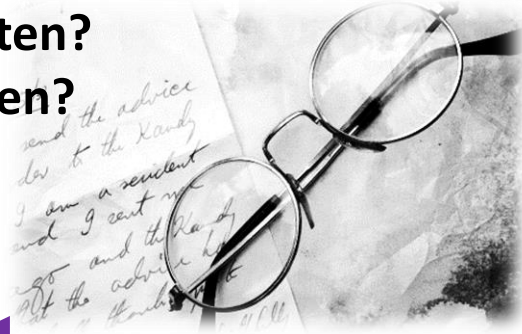 ten?
en?
send the advice
der to the Kandy
I am a student
and I sent me
ago and the Kandy
at the advice